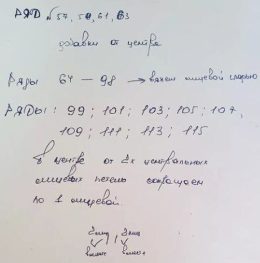 РЯД № 57, 59, 61, 63
добавки от центра
Ряды 64 — 98 → вяжем лицевой гладью
РЯДЫ: 99; 101; 103; 105; 107,
109; 111; 113; 115
в центре от 2х центральных
лицевых петель сокращаем
по 1 лицевой.
2лиц 2лиц